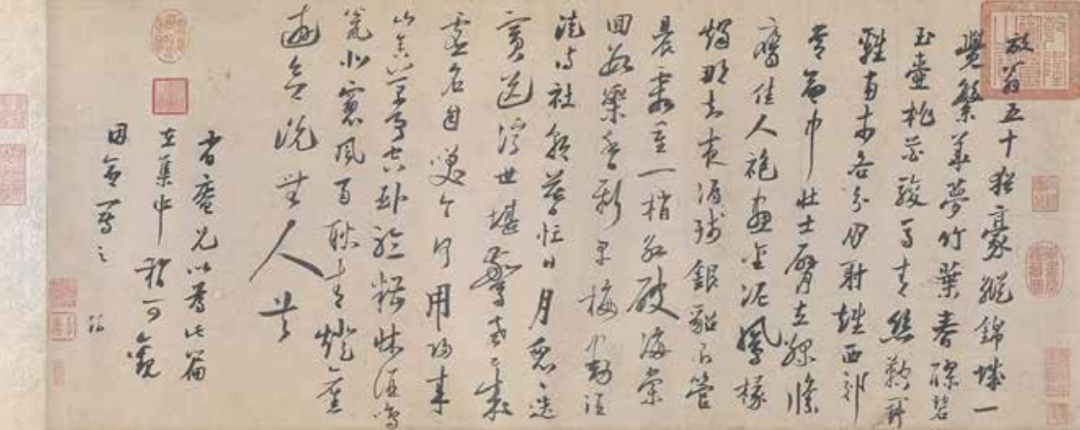 放翁五十猶豪縱錦城一
覺繁華夢竹葉春醪碧
玉壺桃花駿馬青絲鞚鬥
雞南市各分朋射雉西郊
常命中壯士臂立綠絛
鷹佳人袍畫金泥鳳椽
燭那知夜漏殘銀貂不管
晨霜重一梢紅破海棠
回數蕊香新早梅動酒
徒詩社朝暮忙日月匆匆迭
賓送浮世堪驚老已成
虛名自笑今何用歸來
山舍萬事空臥聽糟床酒鳴
甕北窗風雨耿青燈舊
遊欲說無人共
省庵兄以為此篇
在集中稍可觀
因命寫之
游